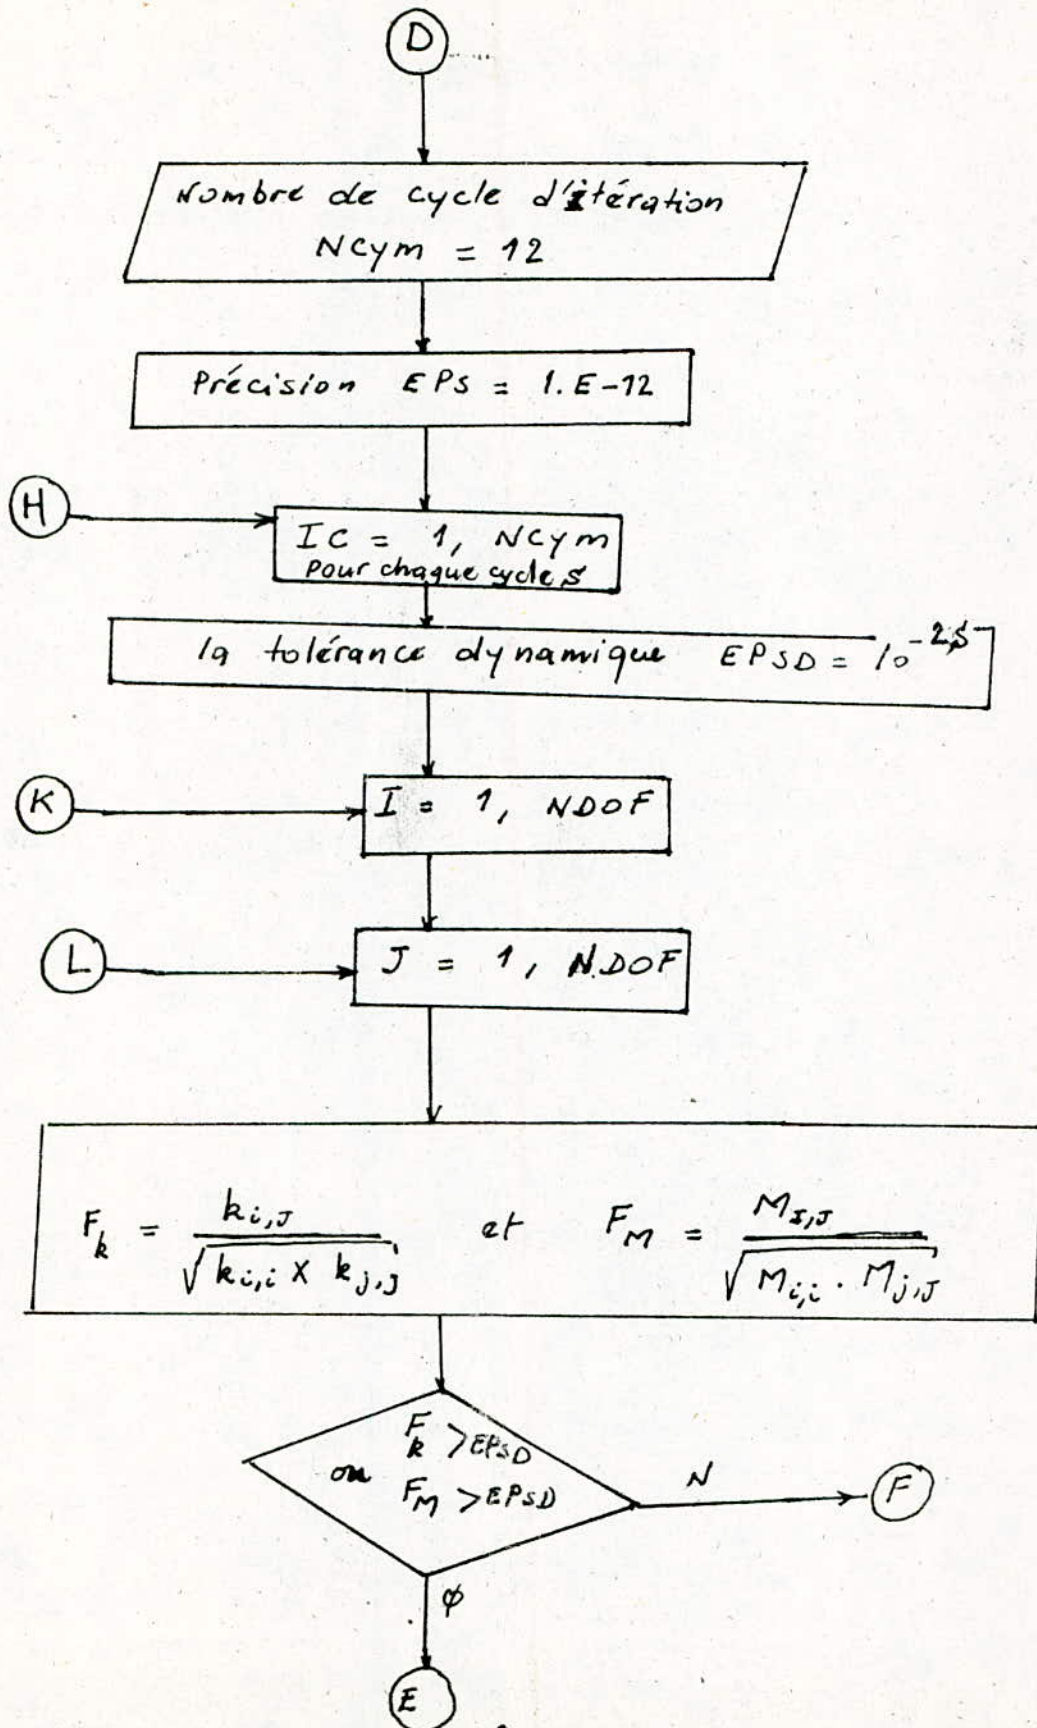 D
Nombre de cycle d'itération
NCym = 12
Précision EPS = 1.E-12
H
IC = 1, NCym
pour chaque cycle S
la tolérance dynamique EPSD = 10^-2S
K
I = 1, NDOF
L
J = 1, NDOF
F_k = k_i,J / √(k_i,i X k_j,J) et F_M = M_I,J / √(M_i,i . M_j,J)
F_k > EPSD
ou
F_M > EPSD
N
F
φ
E